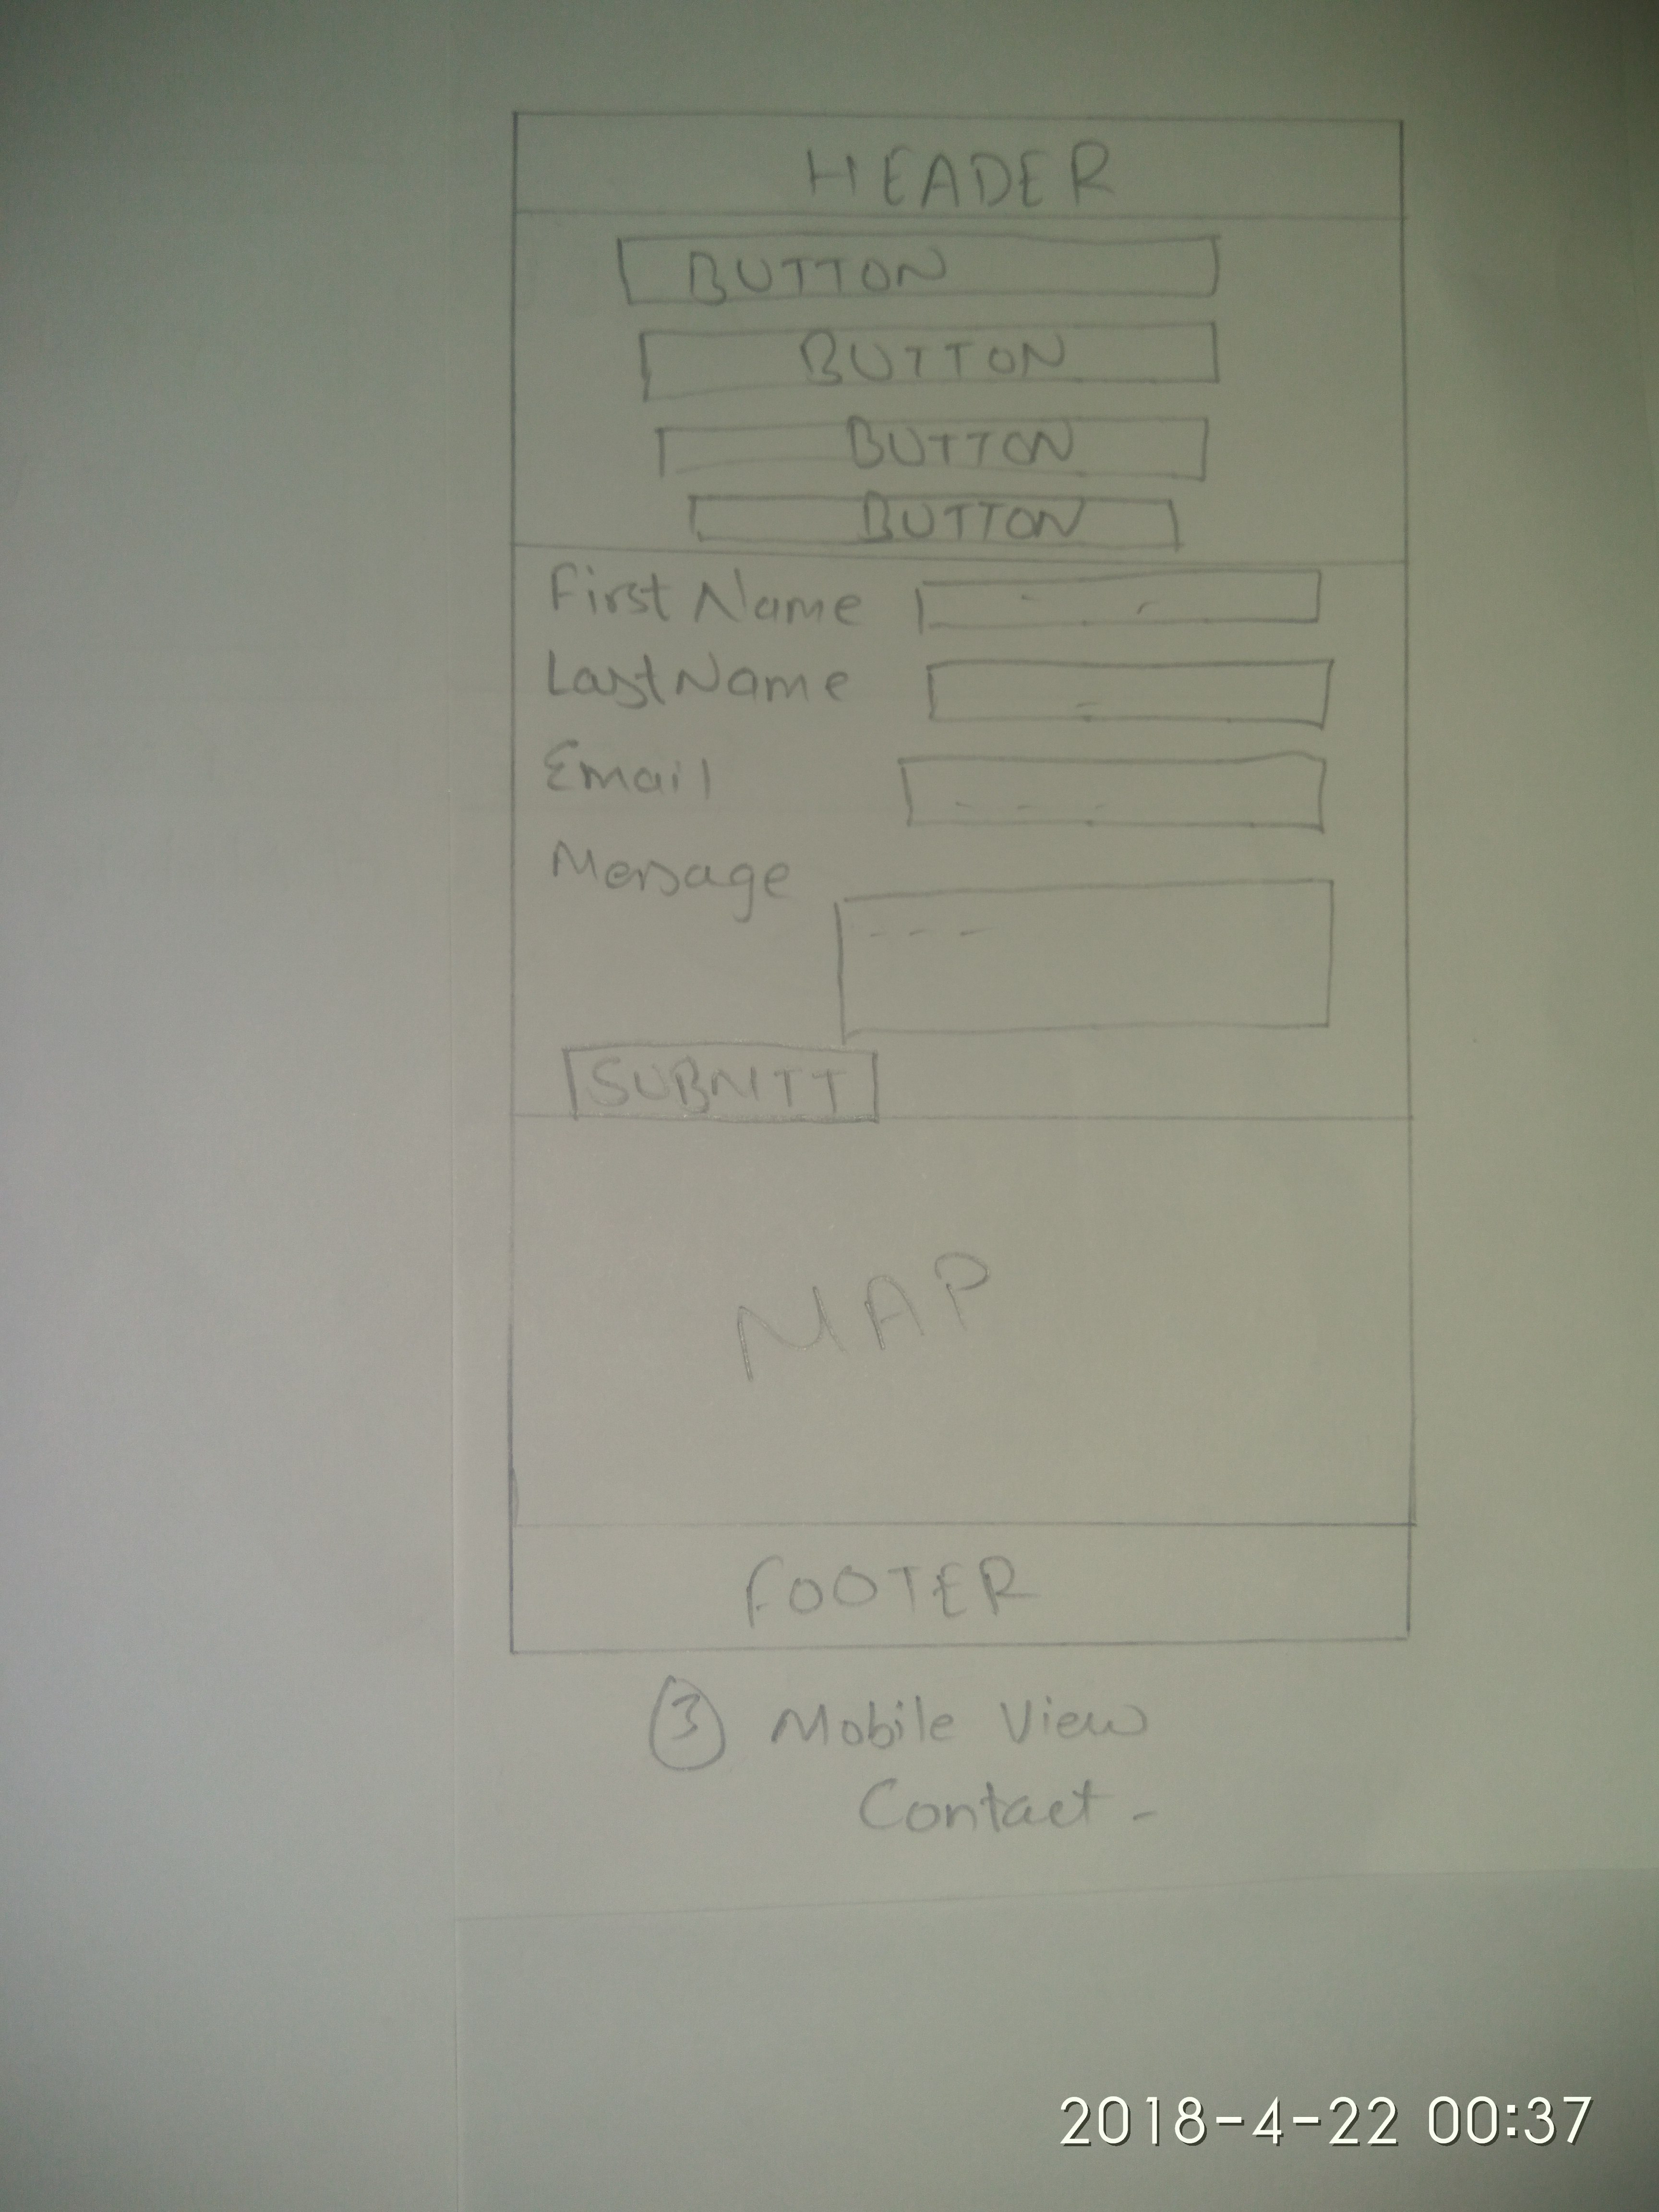 HEADER
BUTTON
BUTTON
BUTTON
BUTTON
First Name
Last Name
Email
Message
SUBMITT
MAP
FOOTER
3 Mobile View
Contact -
2018-4-22 00:37